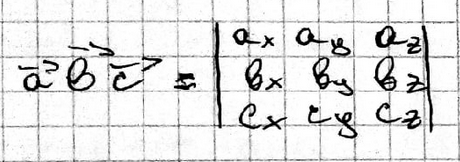 a⃗ b⃗ c⃗ = | a_x a_y a_z |
| b_x b_y b_z |
| c_x c_y c_z |